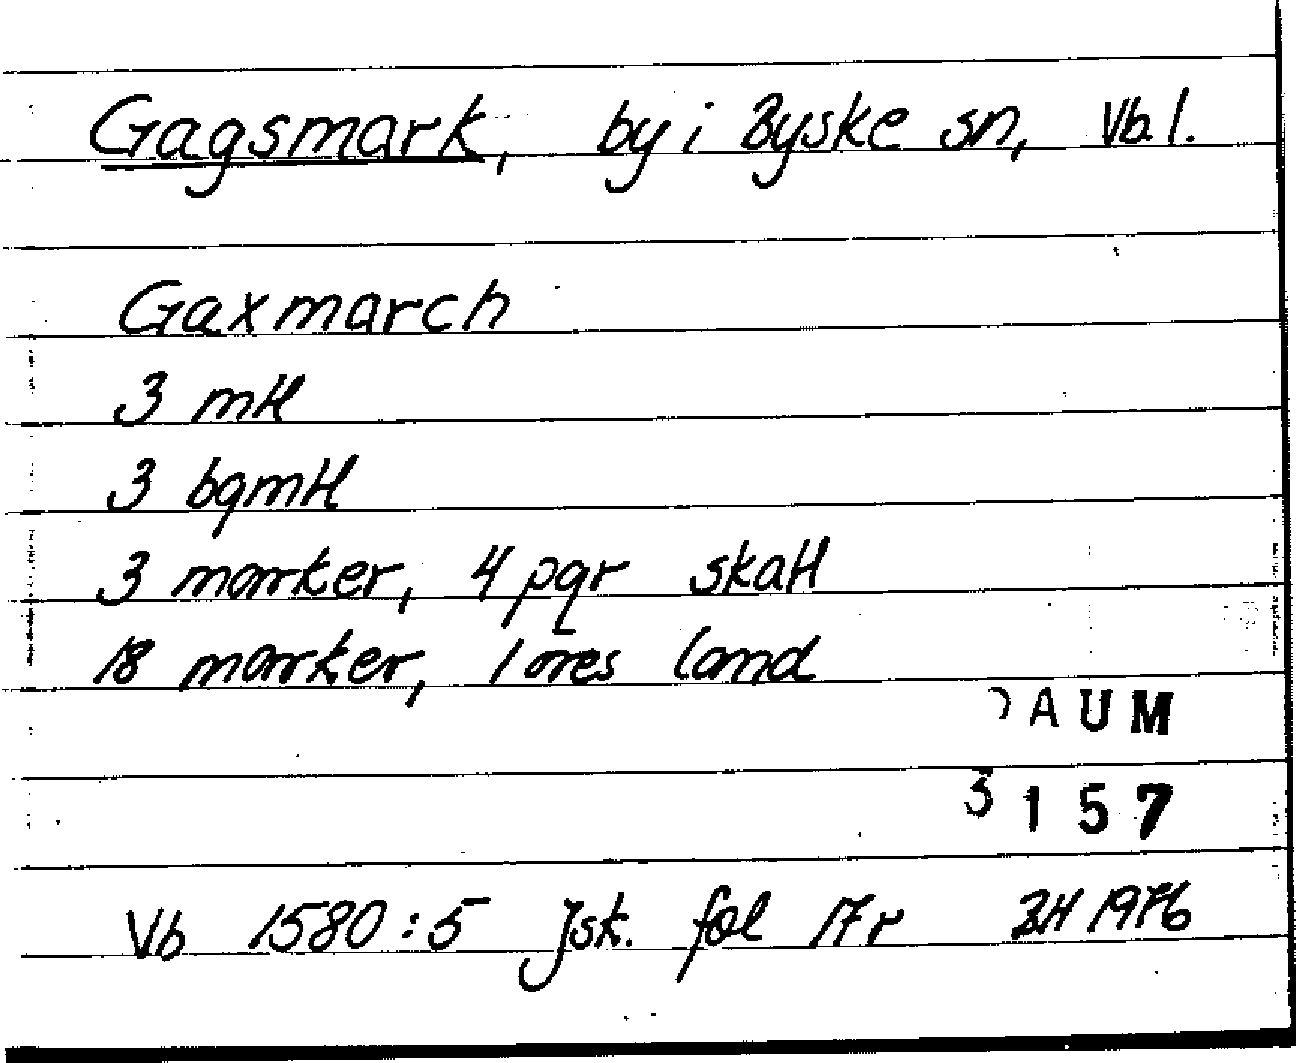 Gagsmark, by i Byske sn, Vb l.
Gaxmarch
3 mtl
3 bgmtl
3 marker, 4 pgr skatt
18 marker, 1 öres land
DAUM
3157
Vb 1580:5 Jsk. fol 17 r 1976